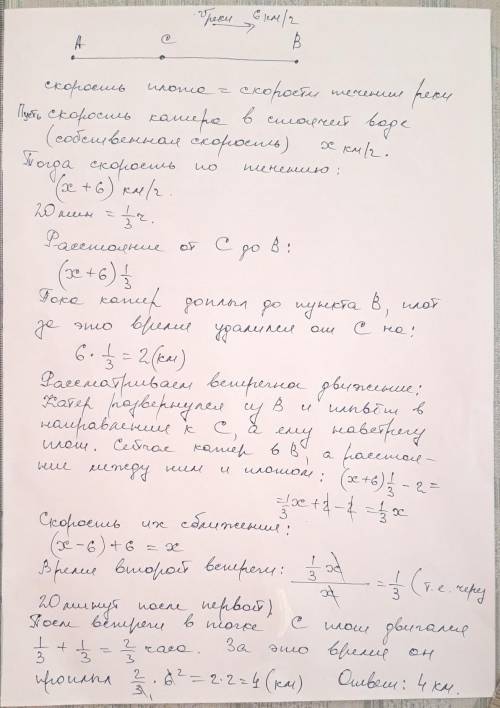 vреки 6 км/ч
A C B
скорость плота = скорости течения реки
Пусть скорость катера в стоячей воде
(собственная скорость) x км/ч.
Тогда скорость по течению:
(x+6) км/ч.
20 мин = 1/3 ч.
Расстояние от C до B:
(x+6) 1/3
Пока катер доплыл до пункта B, плот
за это время удалился от C на:
6 · 1/3 = 2 (км)
Рассматриваем встречное движение:
Катер развернулся из B и плывёт в
направлении к C, а ему навстречу
плот. Сейчас катер в B, а расстоя-
ние между ним и плотом: (x+6) 1/3 - 2 =
= 1/3 x + 2 - 2 = 1/3 x
Скорость их сближения:
(x-6) + 6 = x
Время второй встречи: (1/3 x)/x = 1/3 (т.е. через
20 минут после первой)
После встречи в точке C плот двигался
1/3 + 1/3 = 2/3 часа. За это время он
проплыл 2/3 · 6 2 = 2·2 = 4 (км) Ответ: 4 км.